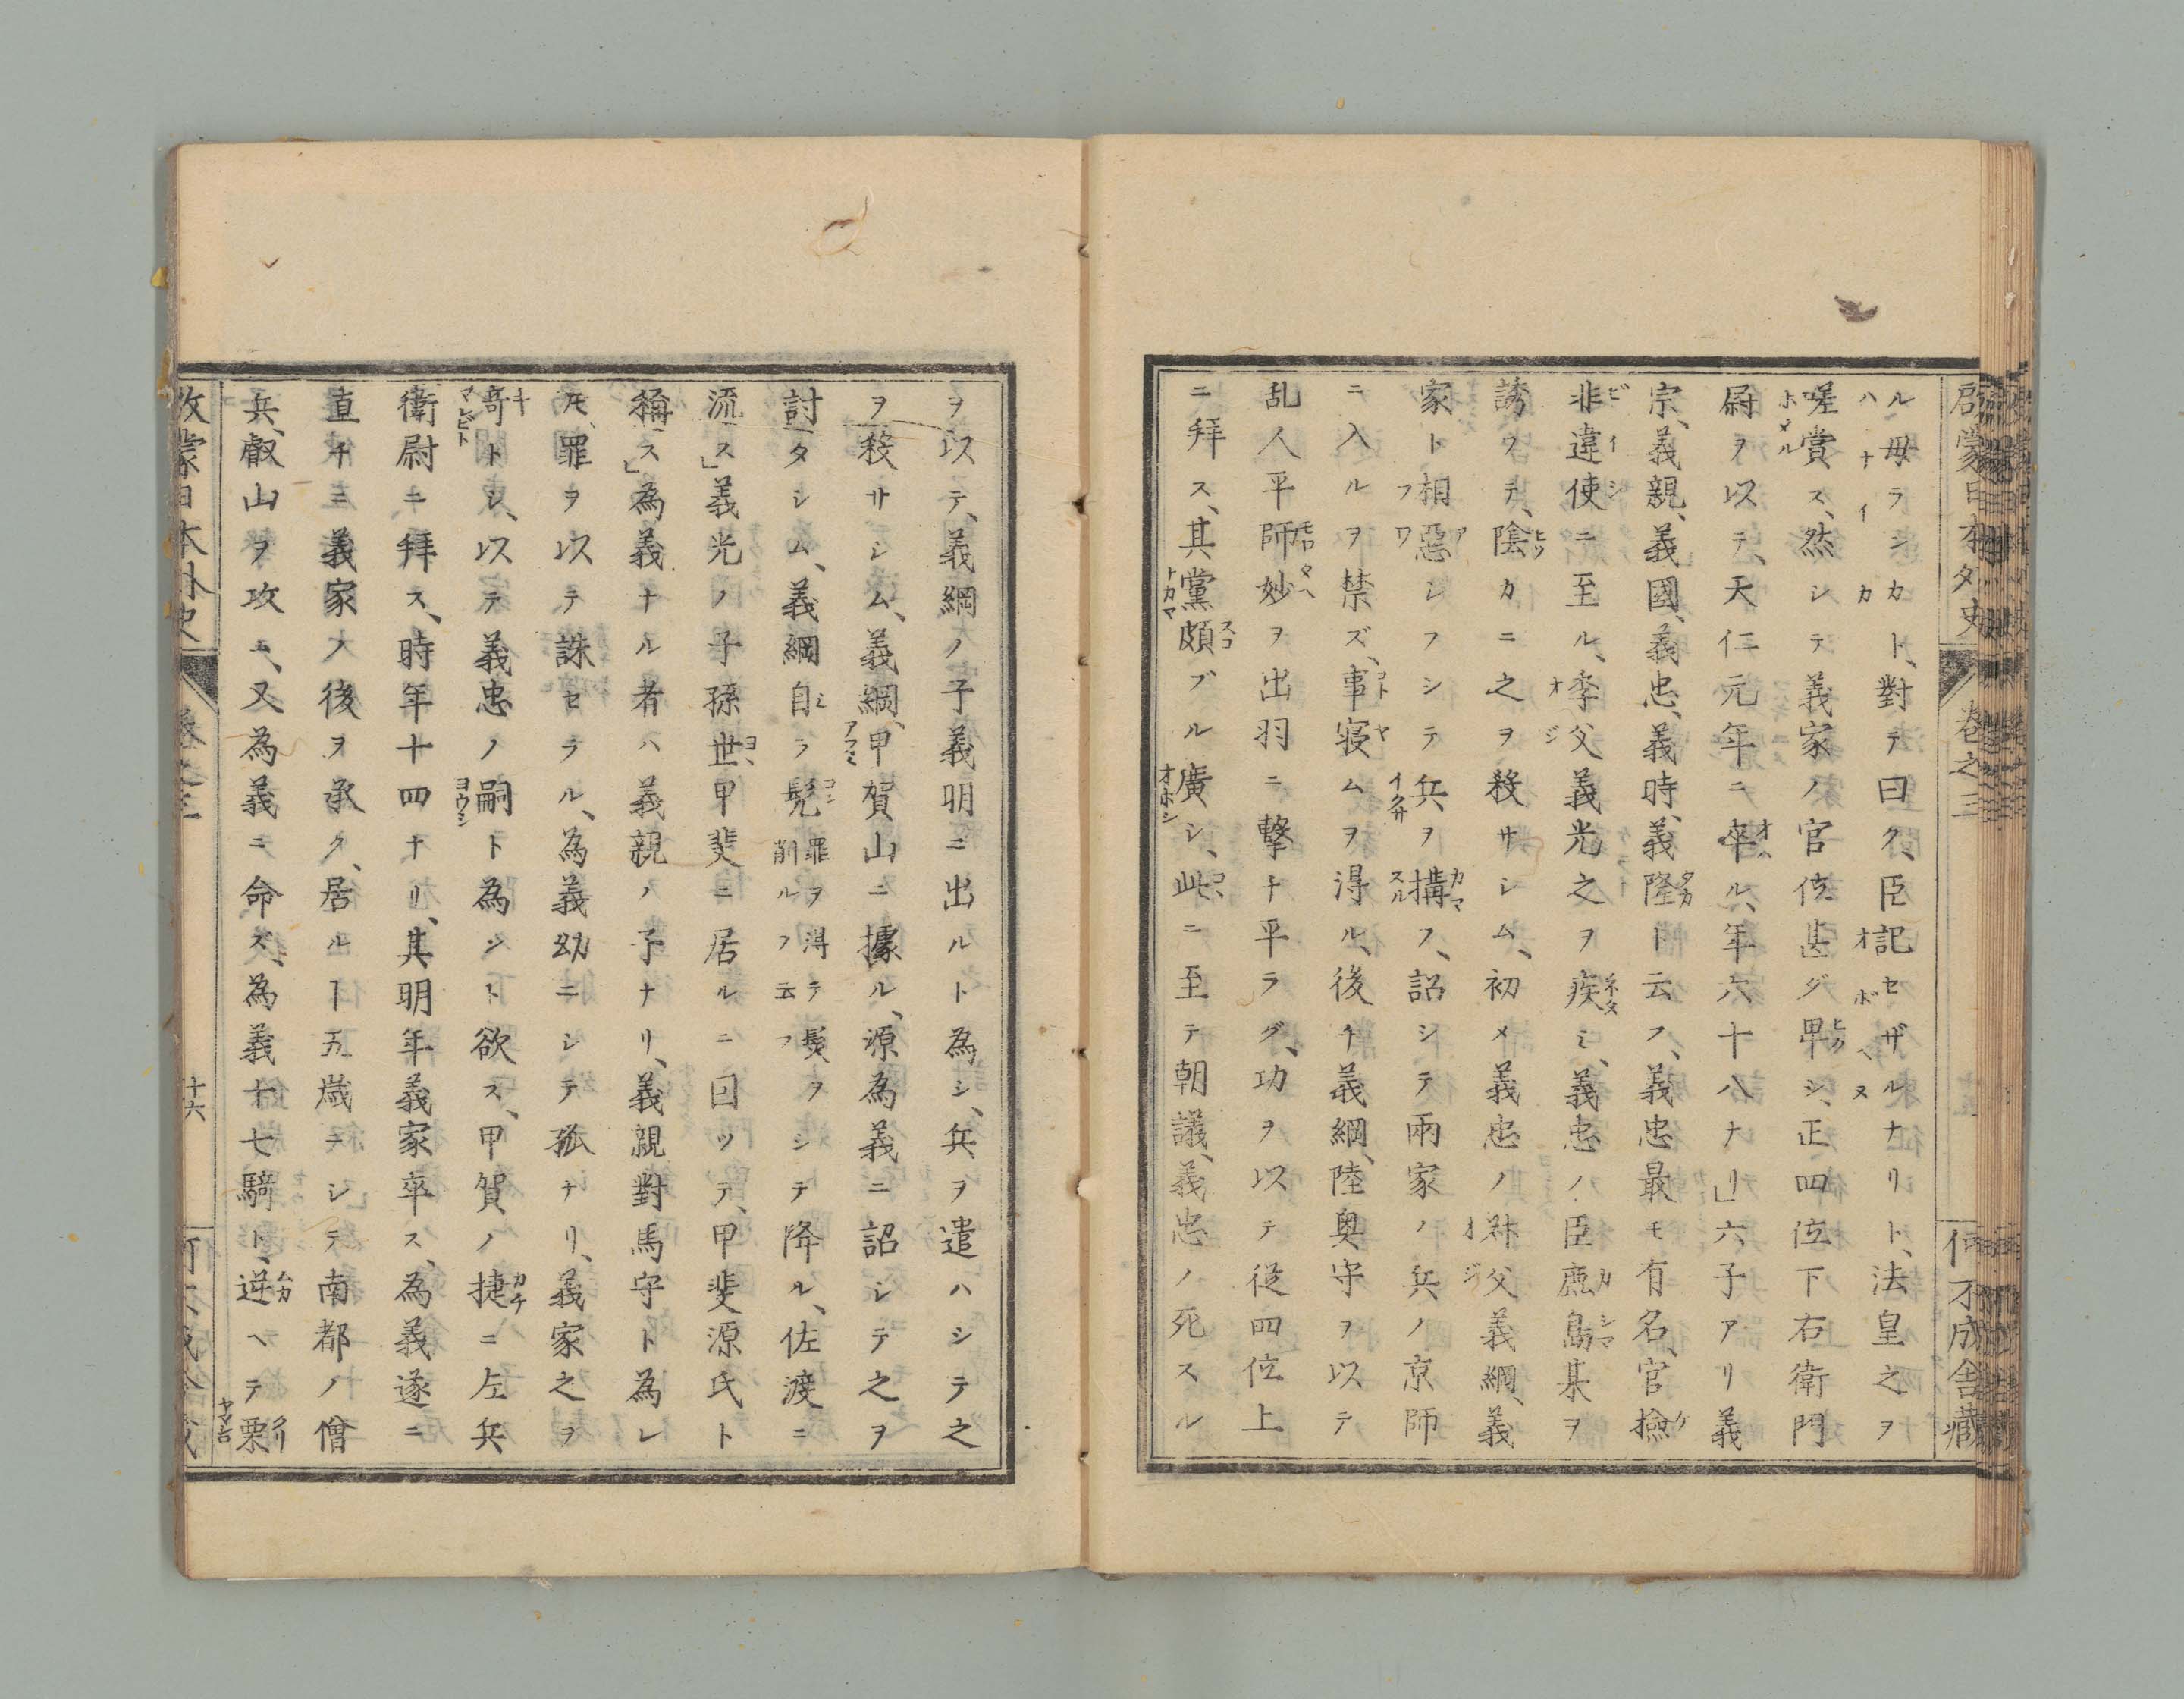 啓蒙日本外史
卷之三
何不成舎藏
ル毋ラシカト、對テ曰ク、臣記セザルナリト、法皇之ヲ
嗟賞ス、然シテ義家ノ官位甚ダ卑シ、正四位下右衛門
尉ヲ以テ、天仁元年ニ卒ル、年六十八ナリ」六子アリ義
宗、義親、義國、義忠、義時、義隆ト云フ、義忠最モ有名、官撿
非違使ニ至ル、李父義光之ヲ疾ミ、義忠ノ臣鹿島某ヲ
誘ヲテ、陰カニ之ヲ殺サシム、初メ義忠ノ叔父義綱、義
家ト相惡シフシテ兵ヲ構フ、詔シテ兩家ノ兵ノ京師
ニ入ルヲ禁ズ、事寝ムヲ得ル、後チ義綱、陸奥守ヲ以テ
乱人平師妙ヲ出羽ニ擊チ平ラグ、功ヲ以テ従四位上
ニ拜ス、其黨頗ブル廣シ、此ニ至テ朝議、義忠ノ死スル
ヲ以テ、義綱ノ子義明ニ出ルト為シ、兵ヲ遣ハシテ之
ヲ殺サシム、義綱、甲賀山ニ據ル、源為義ニ詔シテ之ヲ
討タシム、義綱自ラ髡罪ヲ得テ髮ヲ削ルヲ云フシテ降ル、佐渡ニ
流ス」義光ノ子孫世甲斐ニ居ルニ因ツテ、甲斐源氏ト
稱ス」為義ナル者ハ義親ノ子ナリ、義親對馬守ト為レ
𪜈、罪ヲ以テ誅セラル、為義幼ニシテ孤ナリ、義家之ヲ
竒トシ、以テ義忠ノ嗣ト為シト欲ス、甲賀ノ捷ニ左兵
衛尉ニ拜ス、時年十四ナリ、其明年義家卒ス、為義遂ニ
直チニ義家ノ後ヲ承ク、居ルヿ五歳ニシテ南都ノ僧
兵、叡山ヲ攻ム、又為義ニ命ス、為義十七騎ト、逆ヘテ栗
啓蒙日本外史
卷之三
十六
何不成舎藏